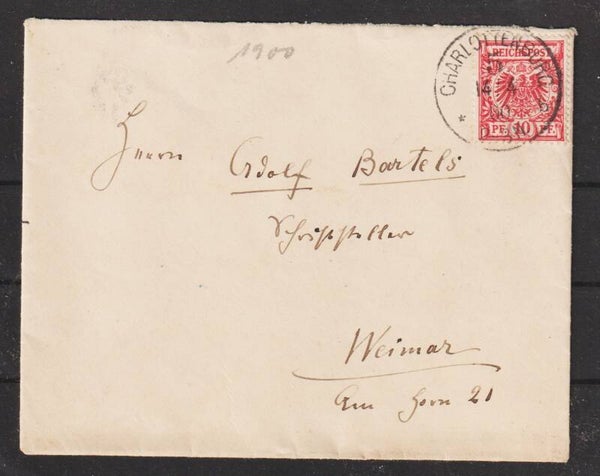 1900
CHARLOTTENBURG
REICHSPOST
14 4
00
PF. 10 PF.
Herrn Adolf Bartels
Schriftsteller
Weimar
Am Horn 21